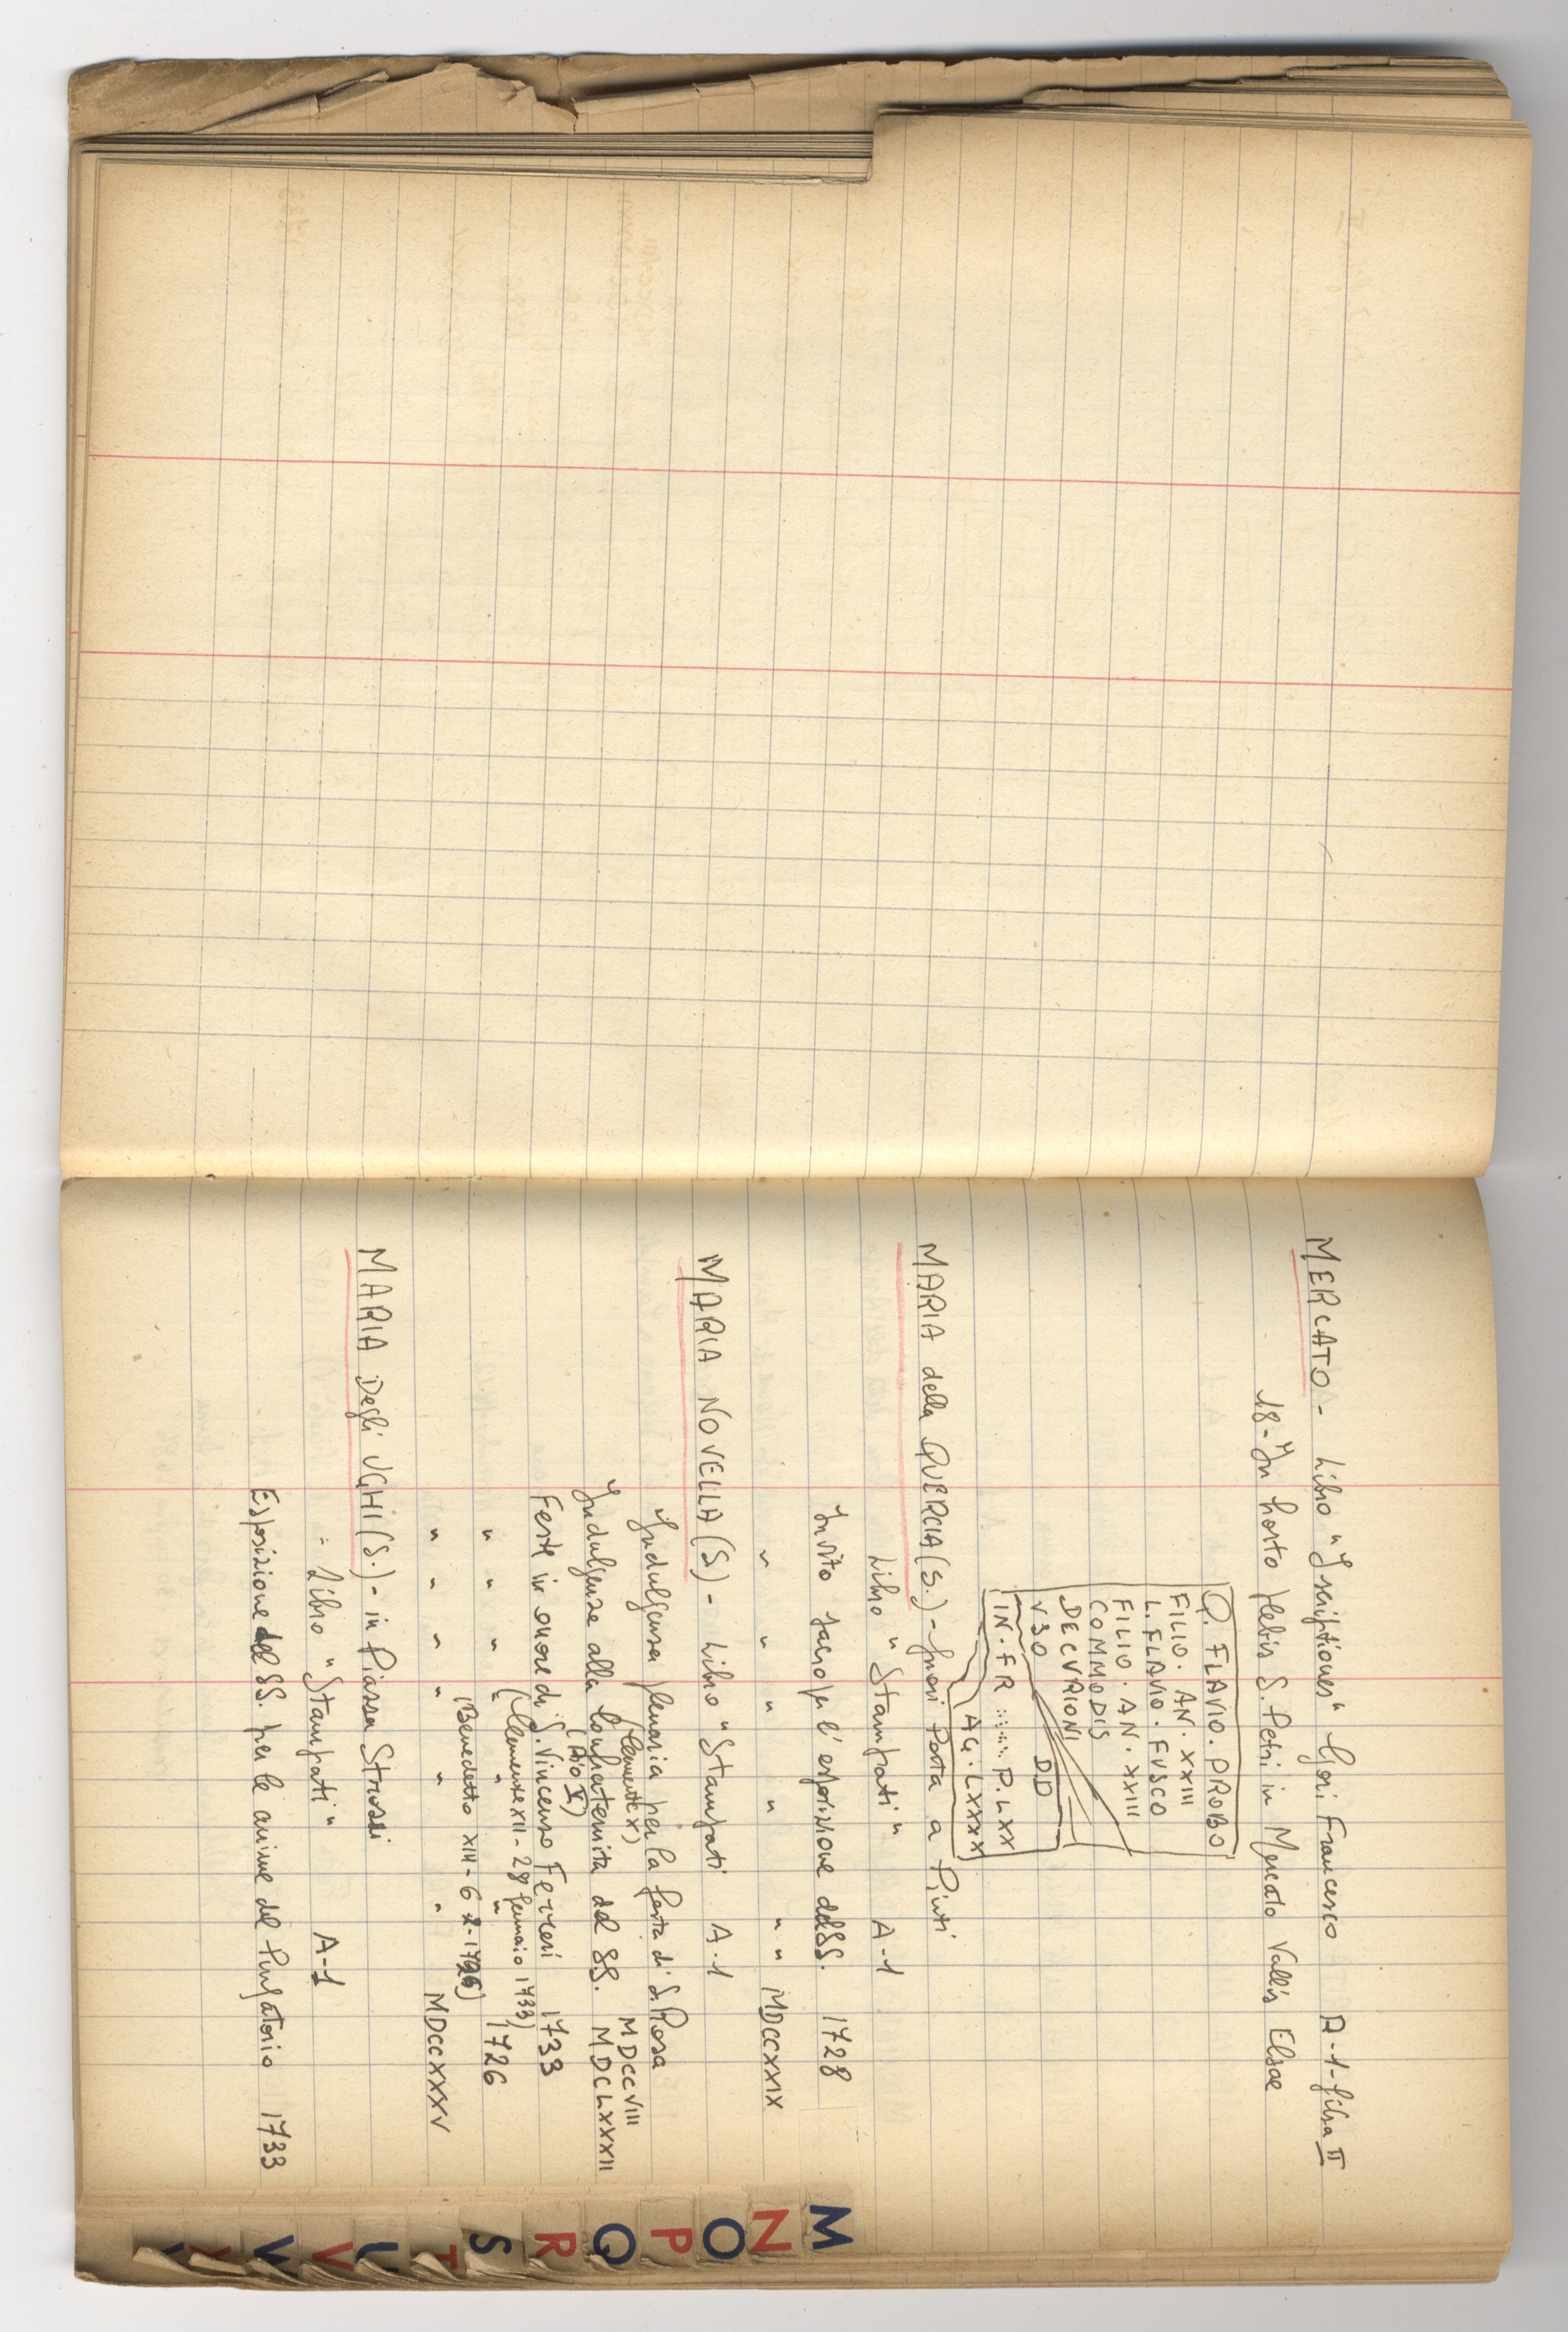 MERCATO - Libro "Iscriptiones" Gori Francesco A-1-filza II
18- In horto plebis S. Petri in Mercato Vallis Elsae
Q. FLAVIO. PROBO
FILIO. AN. XXIII
L. FLAVIO. FVSCO
FILIO. AN. XXIII
COMMODIS
DECVRIONI
V30 DD
IN. FR ..... P. LXX
AG. LXXXX
MARIA della QUERCIA (S.) - fuori Porta a Pinti
Libro "Stampati" A-1
Invito sacro per l'esposizione del SS. 1728
" " " " " " MDCCXXIX
MARIA NOVELLA (S) - Libro "Stampati A-1
Indulgenza plenaria per la festa di S. Rosa
(Clemente X) MDCCVIII
Indulgenze alla Confraternita del SS. MDCLXXXII
(Pio V)
Feste in onore di S. Vincenzo Ferreri 1733
(Clemente XII - 28 Gennaio 1733)
" " " " " 1726
(Benedetto XIII - 6-2-1726)
" " " " " " MDCCXXXV
MARIA Degli UGHI (S.) - in Piazza Strozzi
- Libro "Stampati" A-1
Esposizione del SS. per le anime del Purgatorio 1733
M
N
O
P
Q
R
S
T
U
V
W
X